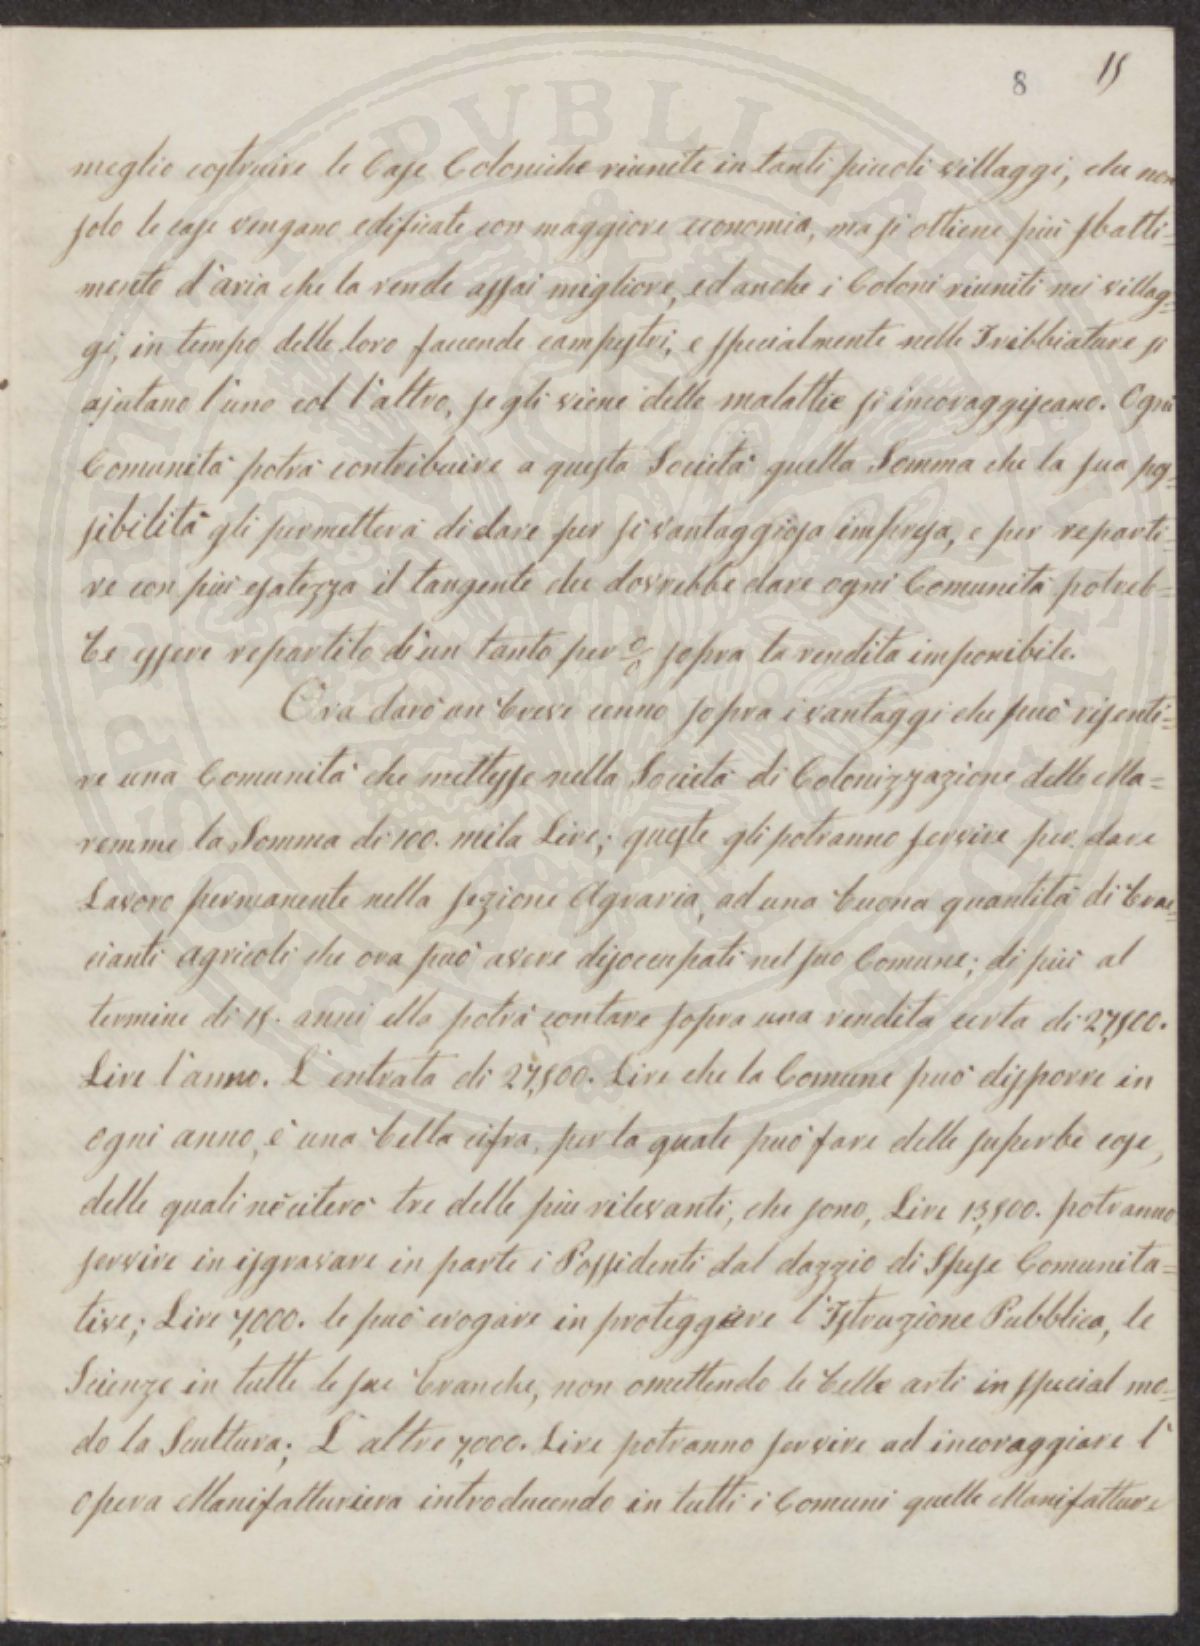 8 15
meglio costruire le Case Coloniche riunite in tanti piccoli villaggi, che non
solo le case vengano edificate con maggiore economia, ma si ottiene più sbatti=
mento d'aria che la rende assai migliore, ed anche i Coloni riuniti nei villag=
gi, in tempo delle loro faccende campestri, e specialmente nelle Tribbiature si
ajutano l'uno col l'altro, se gli viene delle malattie si incoraggiscano. Ogni
Comunità potrà contribuire a questa Società quella Somma che la sua pos=
sibilità gli permetterà di dare per sì vantaggiosa impresa, e per reparti=
re con più esatezza il tangente che dovrebbe dare ogni Comunità potreb=
be essere repartito d'un tanto per % sopra la rendita imponibile.
Ora darò un breve cenno sopra i vantaggi che può risenti=
re una Comunità che mettesse nella Società di Colonizzazione delle Ma=
remme la Somma di 100. mila Lire; queste gli potranno servire per dare
Lavoro permanente nella sezione Agraria, ad una buona quantità di brac=
cianti agricoli che ora può avere disoccupati nel suo Comune; di più al
termine di 15. anni ella potrà contare sopra una rendita certa di 27,500.
Lire l'anno. L'entrata di 27,500. Lire che la Comune può disporre in
ogni anno, è una bella cifra, per la quale può fare delle superbe cose,
delle quali nè citerò tre delle più rilevanti, che sono, Lire 13,500. potranno
servire in isgravare in parte i Possidenti dal dazzio di Spese Comunita=
tive; Lire 7,000. le può erogare in proteggere l'Istruzione Pubblica, le
Scienze in tutte le sue branche, non omettendo le belle arti in special mo=
do la Scultura; L'altre 7,000. Lire potranno servire ad incoraggiare l'
opera Manifatturiera introducendo in tutti i Comuni quelle Manifatture
PUBLICA